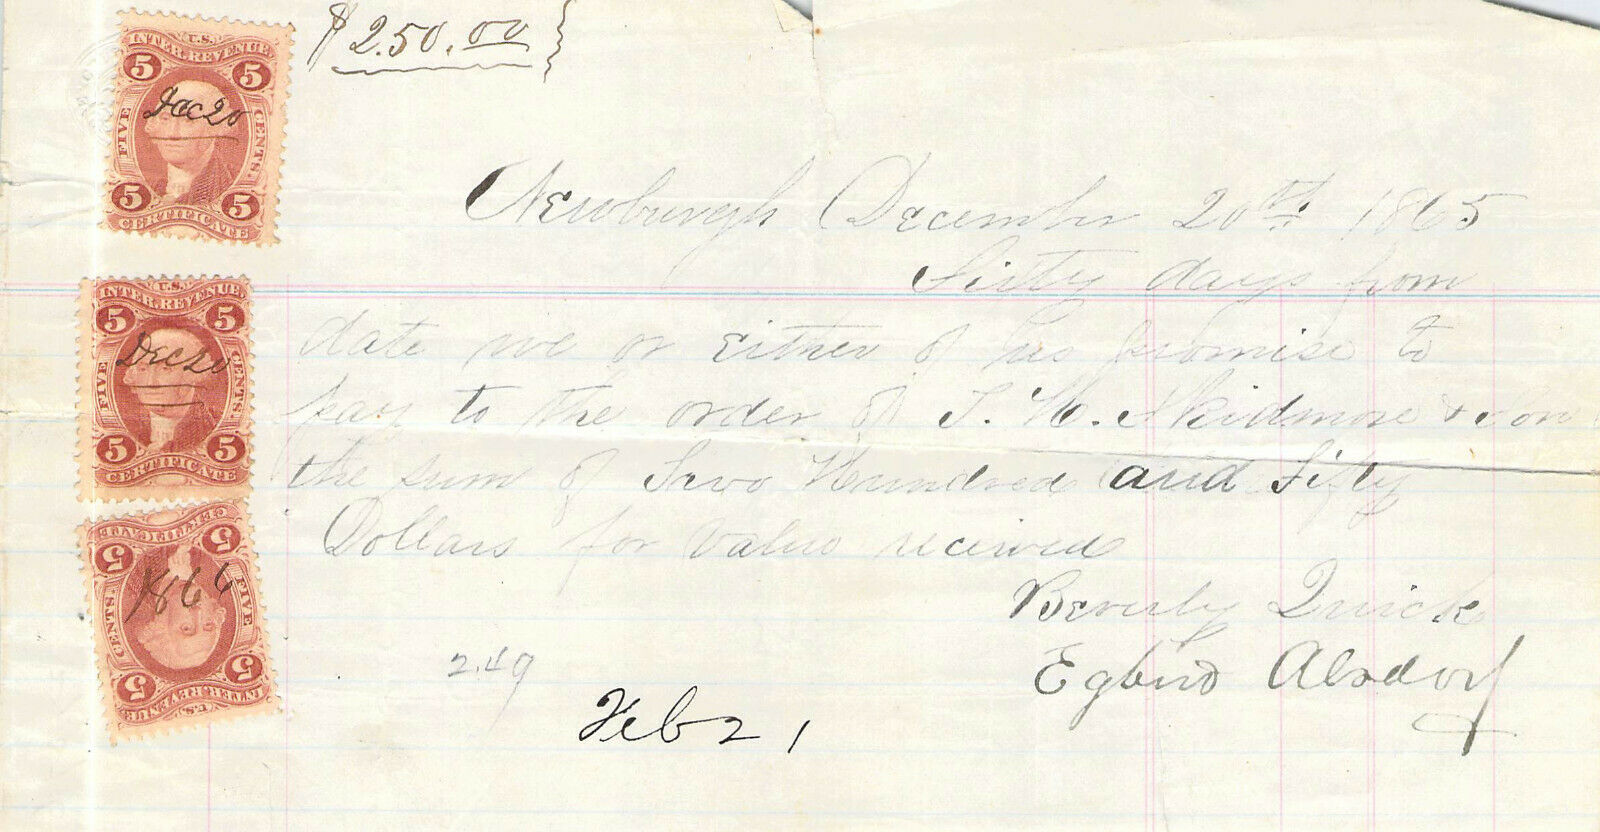 $250.00
Newburgh December 20th. 1865
Sixty days from
date we or Either of us promise to
pay to the order of T. W. Skidmore & son
the sum of Two Hundred and Fifty
Dollars for value received
Beverly Quick
Egbird Alsdorf
2.49
Feb 21
U.S.
INTER. REVENUE
5 5
Dec 20
FIVE CENTS.
5 5
CERTIFICATE
U.S.
INTER. REVENUE
5 5
Dec 20
FIVE CENTS.
5 5
CERTIFICATE
U.S.
INTER. REVENUE
5 5
1866
FIVE CENTS.
5 5
CERTIFICATE